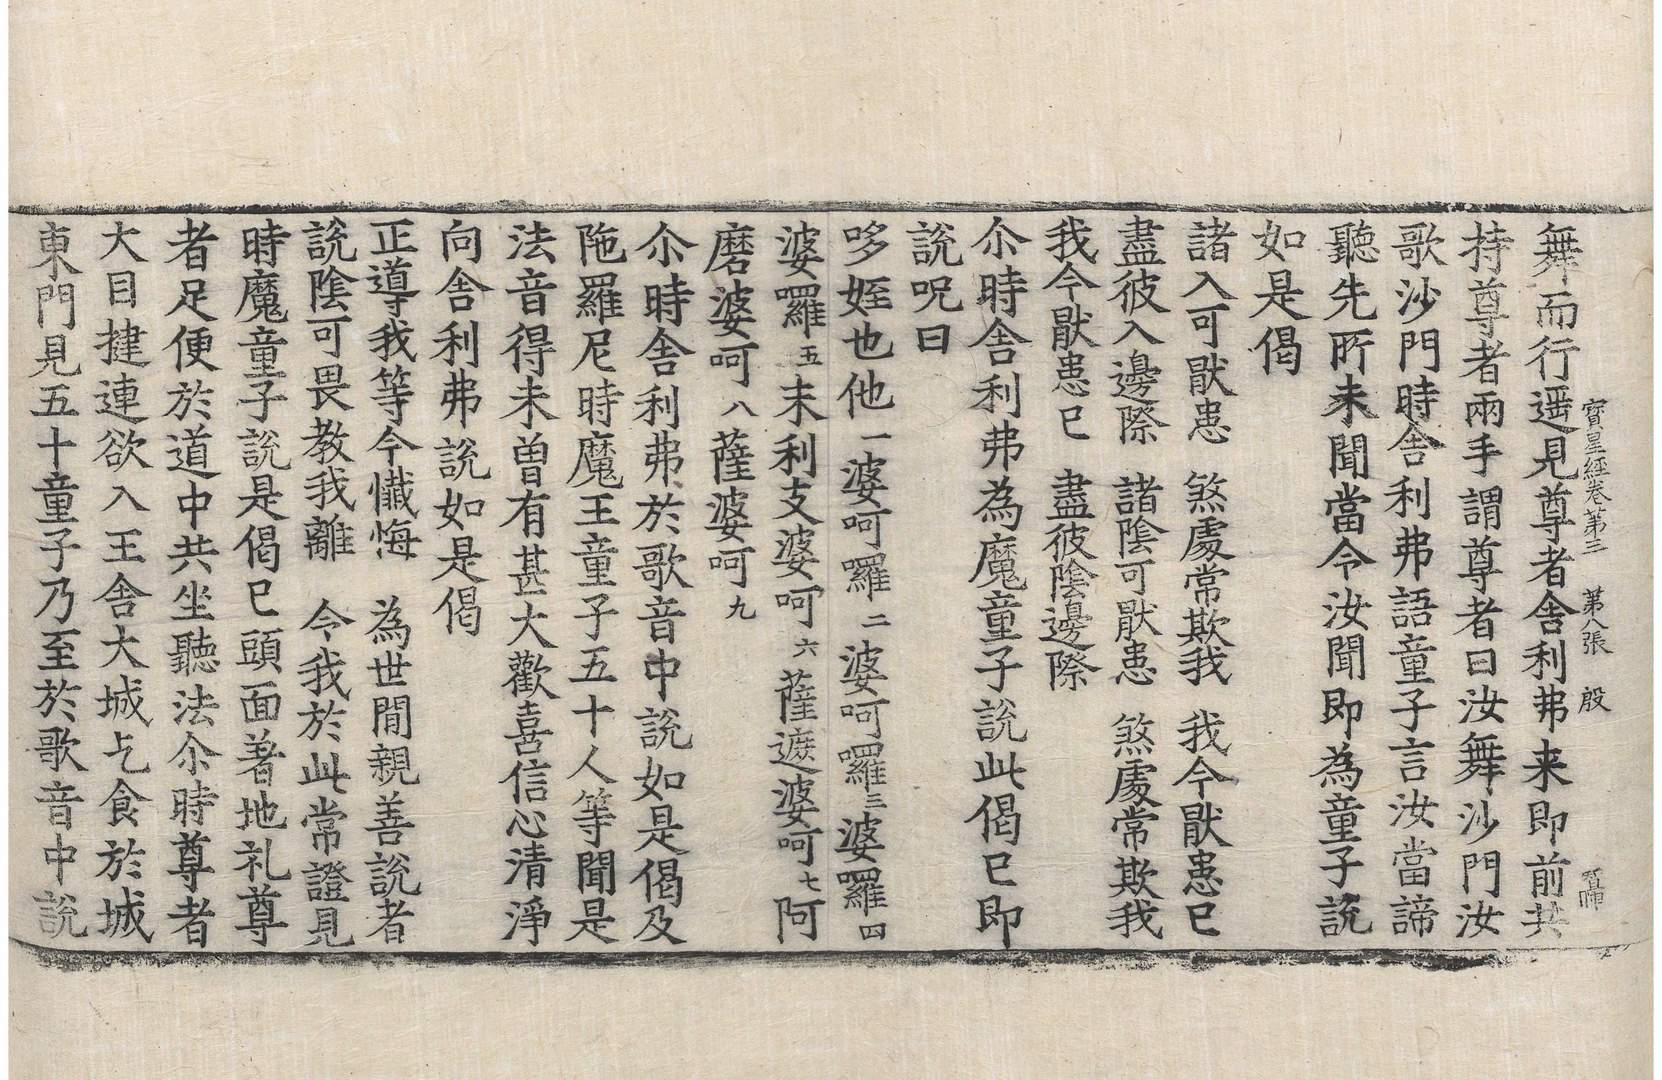 寶星經卷第三　第八張　殷
舞而行遥見尊者舍利弗来即前共
持尊者兩手謂尊者曰汝舞沙門汝
歌沙門時舍利弗語童子言汝當諦
聽先所未聞當令汝聞即為童子說
如是偈
諸入可猒患　煞處常欺我　我今猒患已
盡彼入邊際　諸陰可猒患　煞處常欺我
我今猒患已　盡彼陰邊際
尒時舍利弗為魔童子說此偈已即
說呪曰
哆姪也他一婆呵囉二婆呵囉三婆囉四
婆囉五末利支婆呵六薩遮婆呵七阿
磨婆呵八薩婆呵九
尒時舍利弗於歌音中說如是偈及
陁羅尼時魔王童子五十人等聞是
法音得未曾有甚大歡喜信心清淨
向舍利弗說如是偈
正導我等今懺悔　為世間親善說者
說陰可畏教我離　今我於此常證見
時魔童子說是偈已頭面著地礼尊
者足便於道中共坐聽法尒時尊者
大目揵連欲入王舍大城乞食於城
東門見五十童子乃至於歌音中說